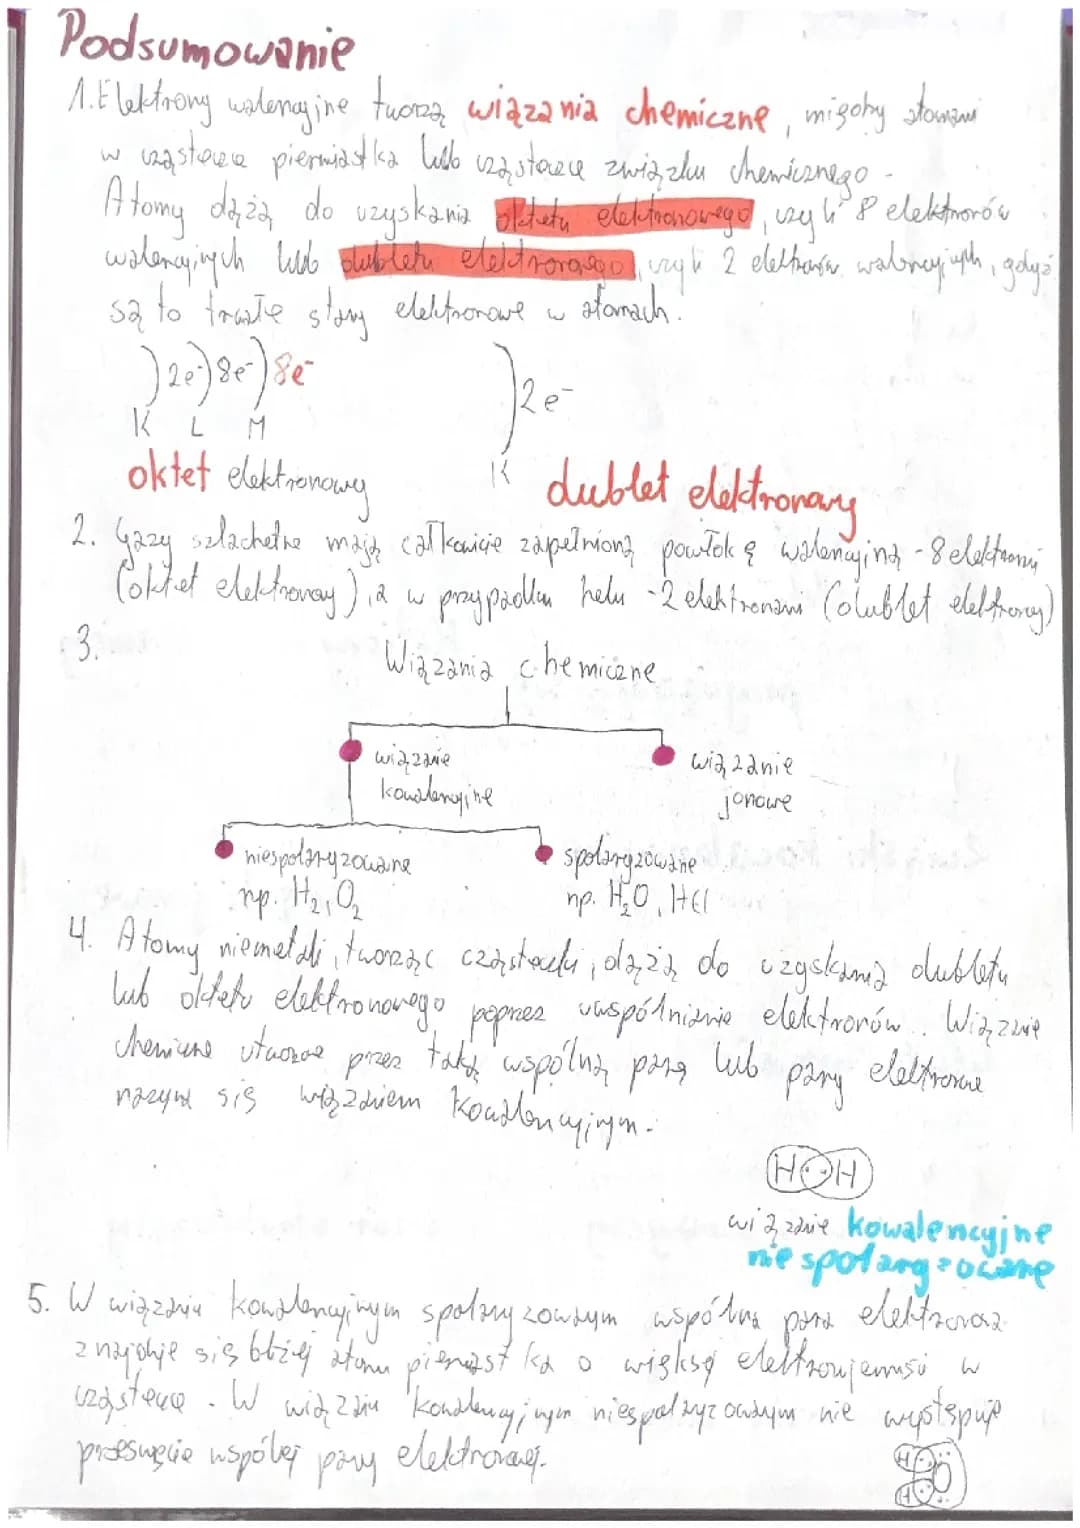 Podsumowanie
1. Elektrony walencyjne tworzą wiązania chemiczne, między atomami
w cząsteczce pierwiastka lub cząsteczce związku chemicznego.
Atomy dążą do uzyskania oktetu elektronowego, czyli 8 elektronów
walencyjnych lub dubletu elektronowego, czyli 2 elektronów walencyjnych, gdyż
są to trwałe stany elektronowe w atomach.
)2e⁻)8e⁻)8e⁻
K L M
)2e⁻
K
oktet elektronowy
dublet elektronowy
2. Gazy szlachetne mają całkowicie zapełnioną powłokę walencyjną - 8 elektronami
(oktet elektronowy), a w przypadku helu - 2 elektronami (dublet elektronowy)
3.
Wiązania chemiczne
wiązanie
kowalencyjne
wiązanie
jonowe
niespolaryzowane
np. H₂, O₂
spolaryzowane
np. H₂O, HCl
4. Atomy niemetali, tworząc cząsteczki, dążą do uzyskania dubletu
lub oktetu elektronowego poprzez uwspólnianie elektronów. Wiązanie
chemiczne utworzone przez taką wspólną parę lub pary elektronowe
nazywa się wiązaniem kowalencyjnym.
H : H
wiązanie kowalencyjne
niespolaryzowane
5. W wiązaniu kowalencyjnym spolaryzowanym wspólna para elektronowa
znajduje się bliżej atomu pierwiastka o większej elektroujemności w
cząsteczce. W wiązaniu kowalencyjnym niespolaryzowanym nie występuje
przesunięcie wspólnej pary elektronowej.
H
O
H